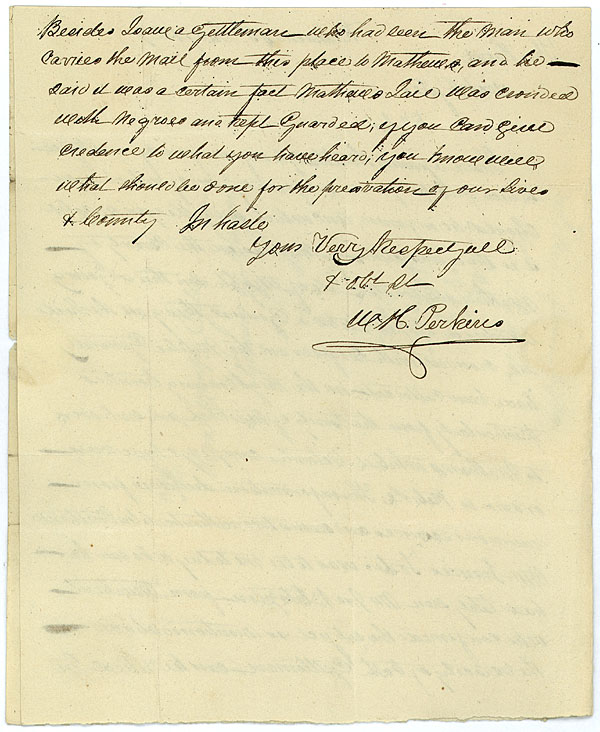 Besides I saw a Gettleman who had seen the man who
carries the mail from this place to Mathews, and he —
said it was a certain fact Mathews Jail was crowded
with Negroes and kept Guarded; if you can give
credence to what you have heard, you know well
what should be done for the preservation of our lives
& County In haste
Your Verry Respectfull
& Obt St
W. H. Perkins